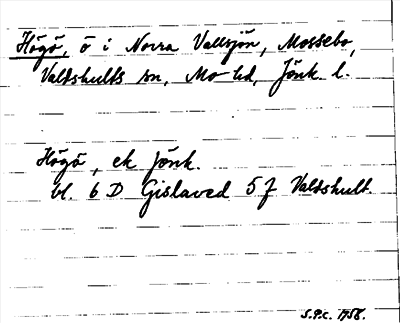 Högö, ö i Norra Vallsjön, Mossebo,
Valdshults sn, Mo hd, Jönk. l.
Högö, ek Jönk.
bl. 6 D Gislaved 5 f Valdshult.
S.P.c. 1958.